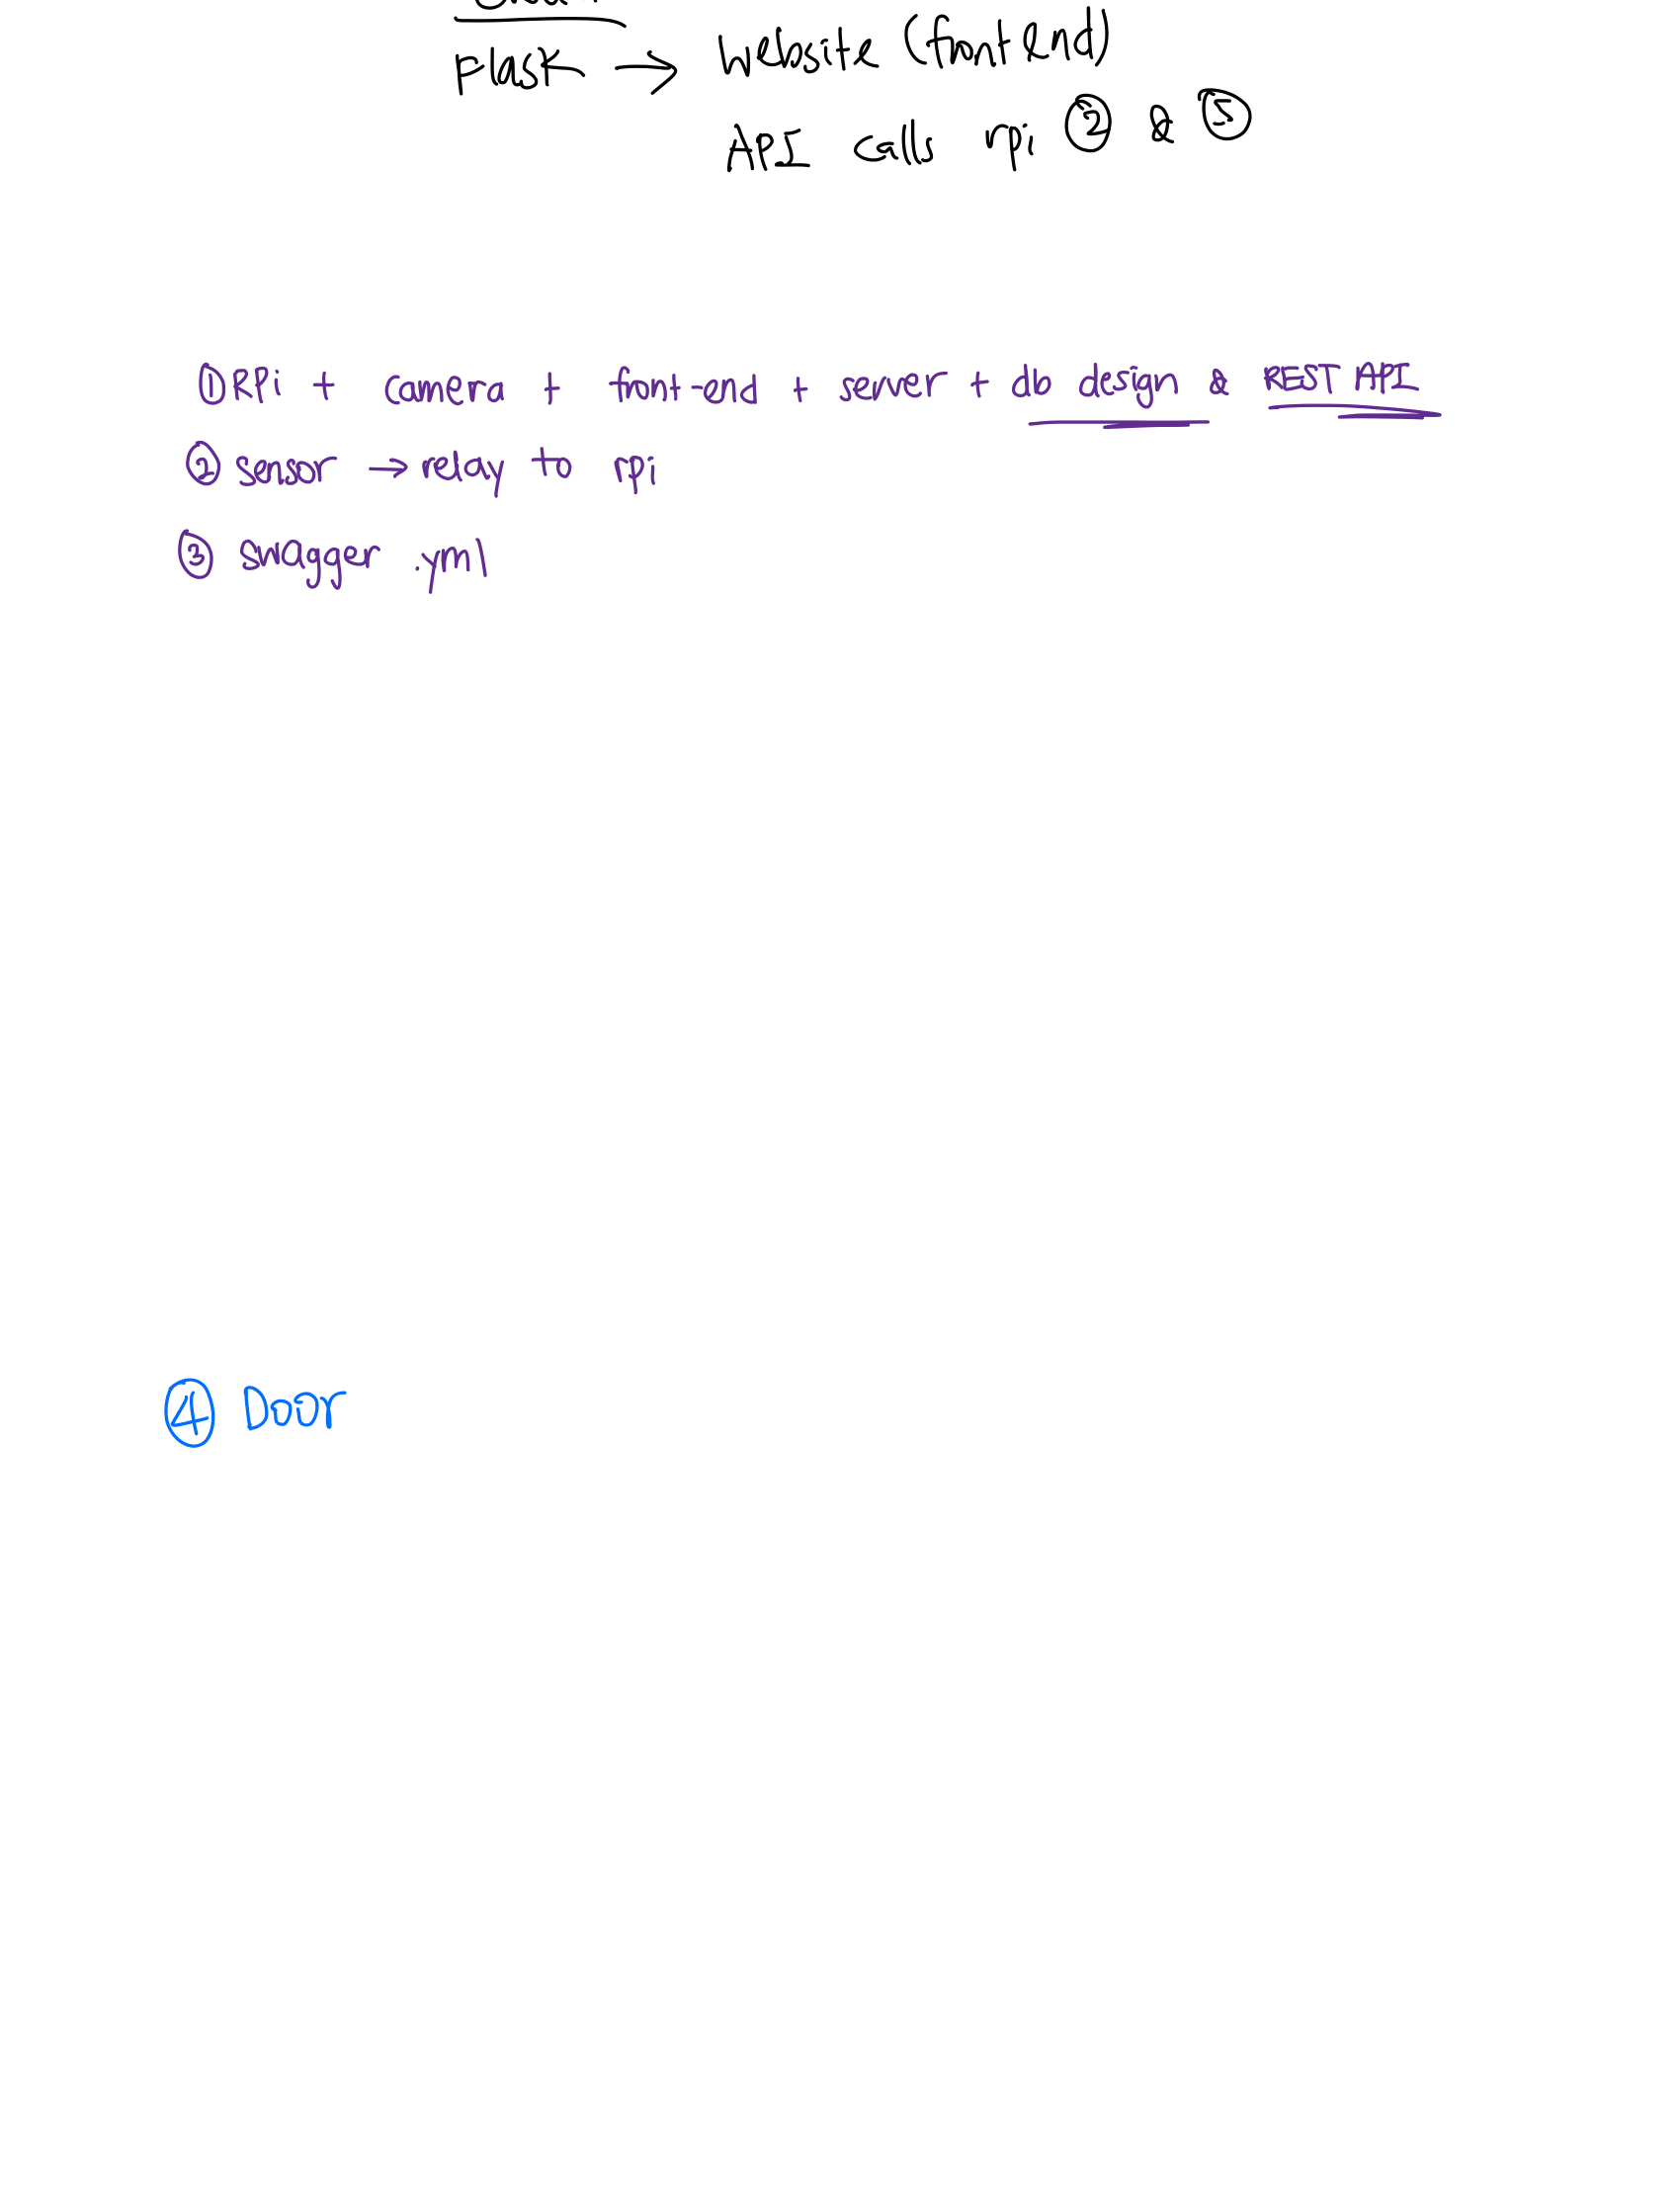 Flask → Website (front end)
API calls rpi ② & ⑤
① RPi + camera + front-end + server + db design & REST API
② sensor → relay to rpi
③ swagger .yml
④ Door